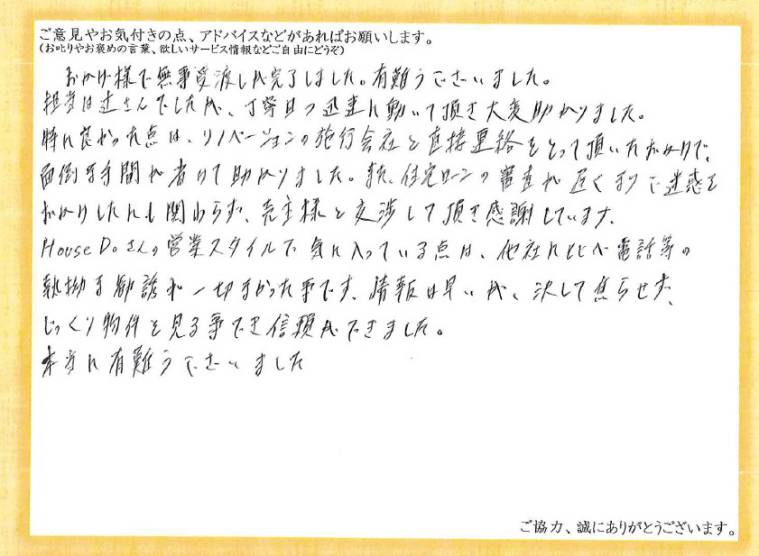 ご意見やお気付きの点、アドバイスなどがあればお願いします。
(お叱りやお褒めの言葉、欲しいサービス情報などご自由にどうぞ)
おかげ様で無事受渡しが完了しました。有難うございました。
担当は辻さんでしたが、丁寧且つ迅速に動いて頂き大変助かりました。
特に良かった点は、リノベーションの施行会社と直接連絡をとって頂いたおかげで、
面倒な手間が省けて助かりました。また、住宅ローンの審査が遅くなりご迷惑を
おかけしたにも関わらず、売主様と交渉して頂き感謝しています。
House Doさんの営業スタイルで気に入っている点は、他社に比べ電話等の
執拗な勧誘が一切なかった事です。情報は早いが、決して焦らせず、
じっくり物件を見る事でき信頼ができました。
本当に有難うございました
ご協力、誠にありがとうございます。